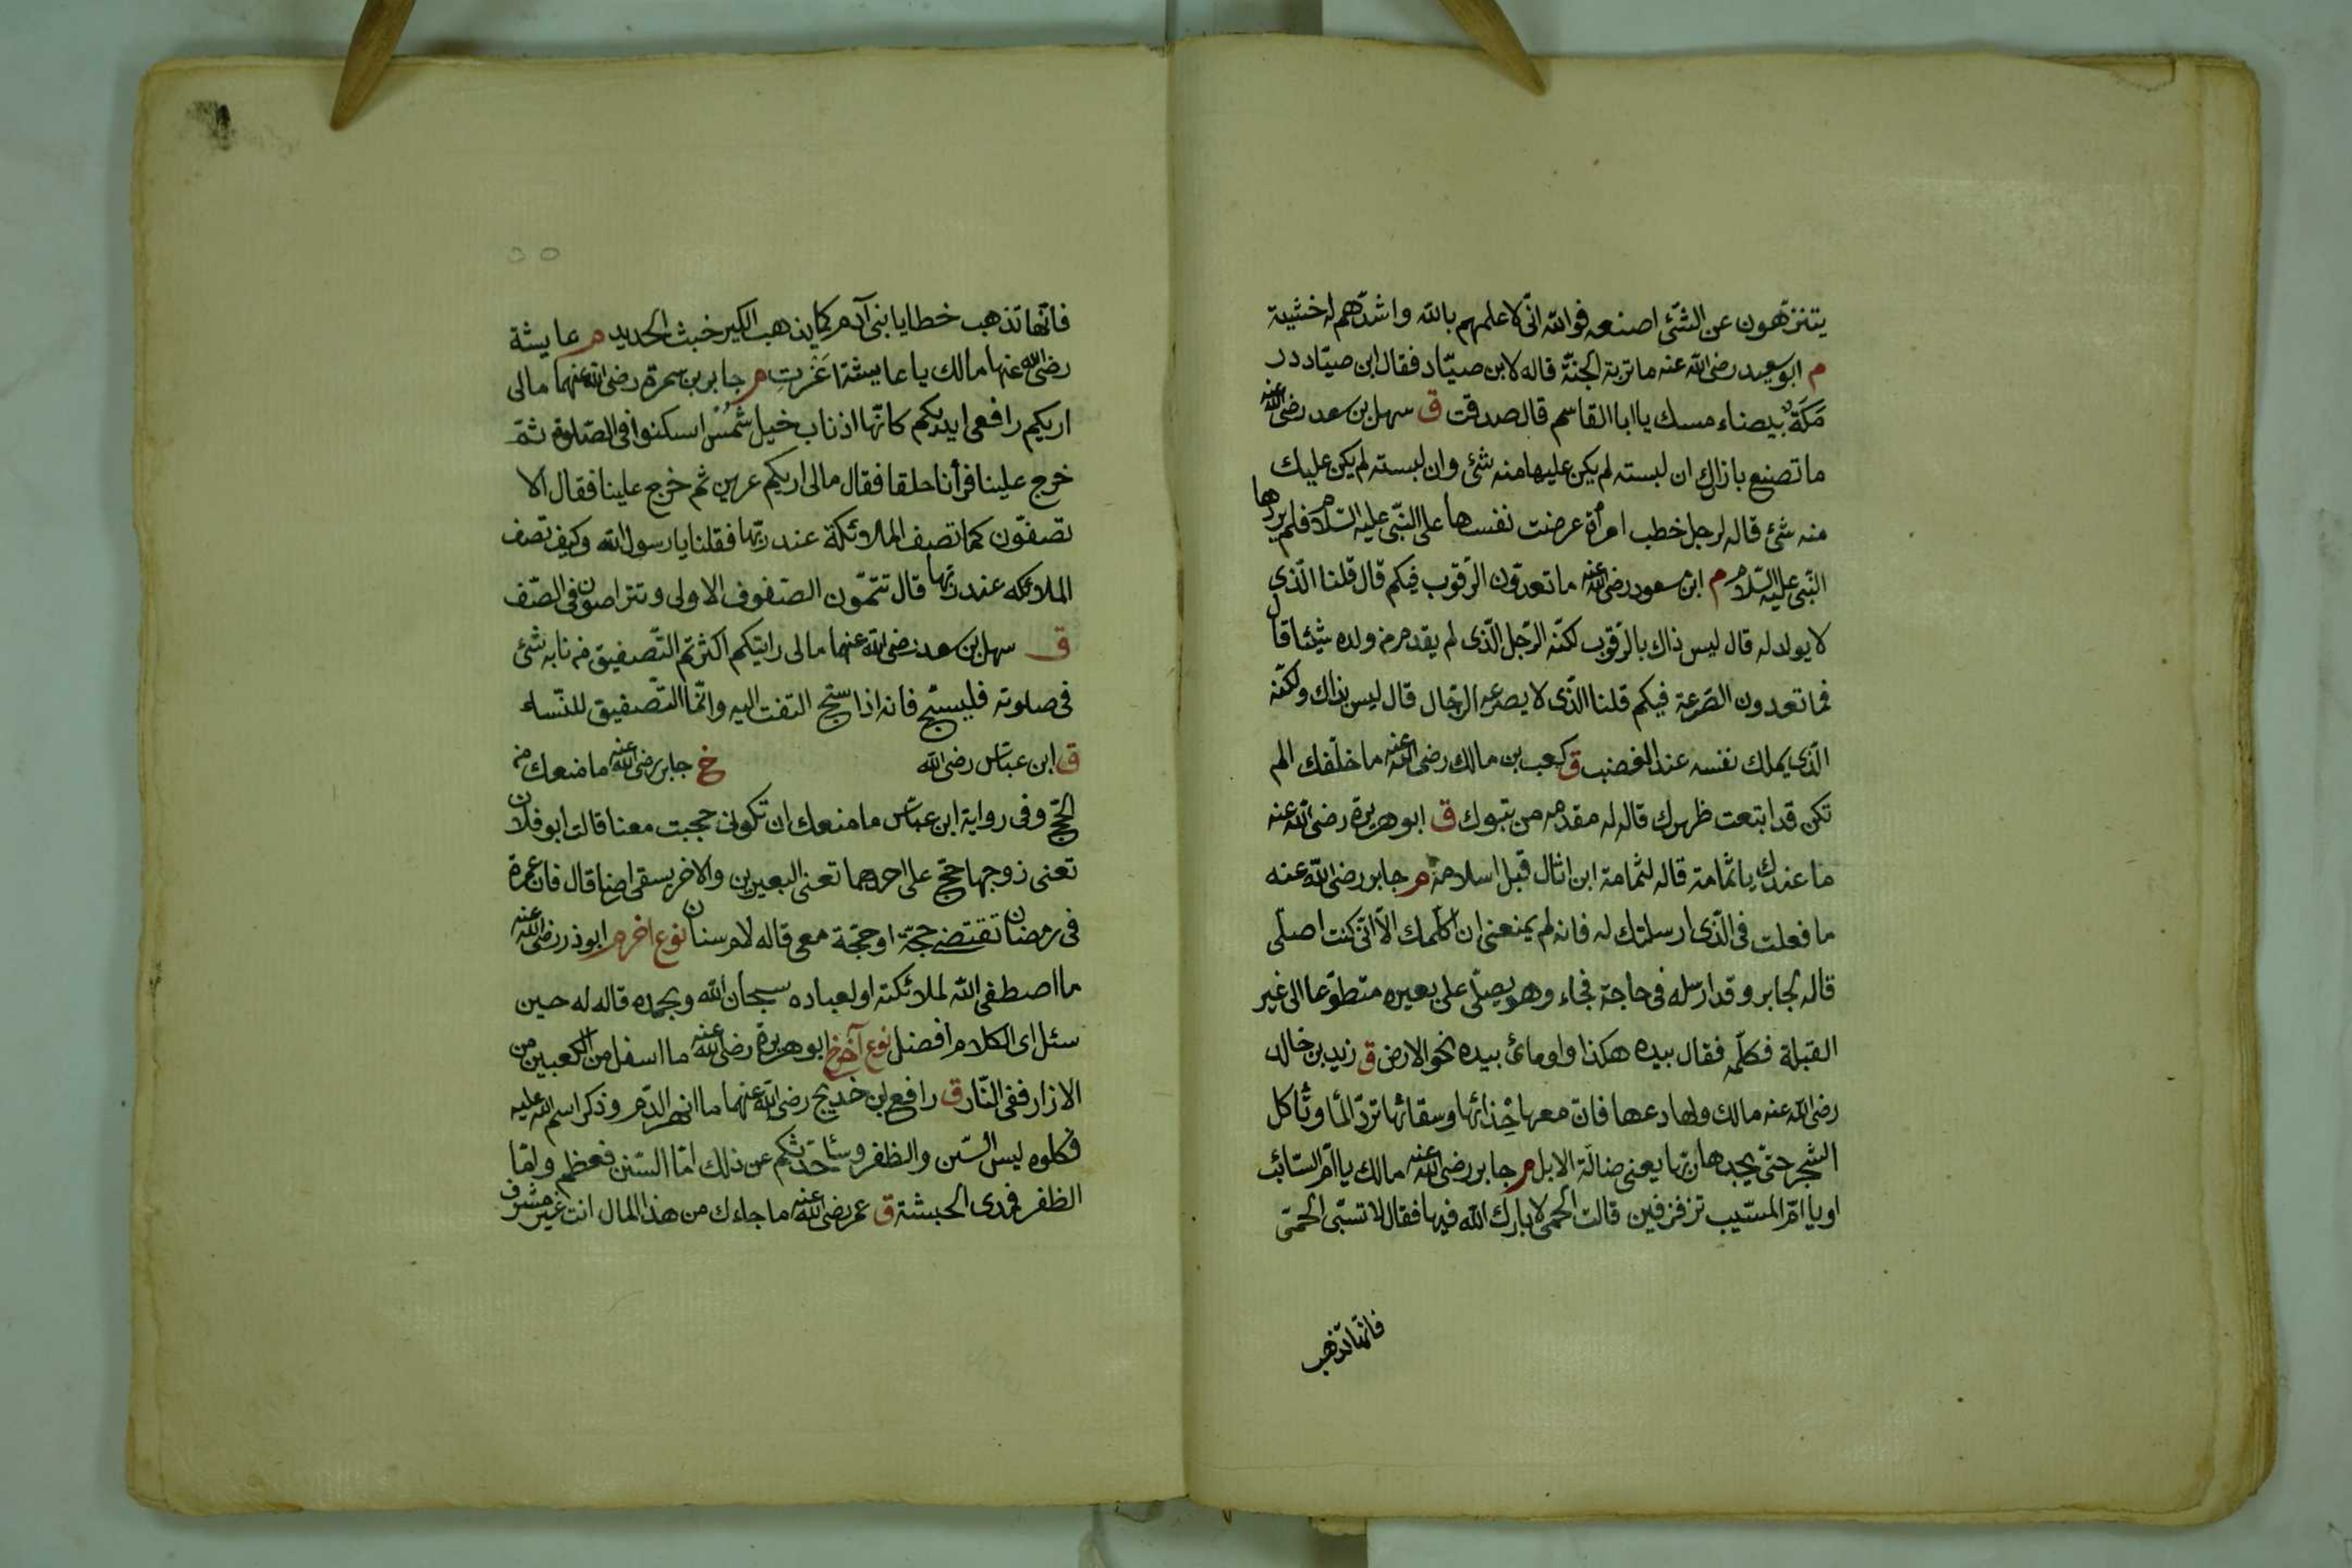 يتنزّهون عن الشّئ اصنعه فوالله انّى لاعلمهم بالله واشدّهم له خشية
م ابو سعيد رضى الله عنه ما تربة الجنّة قاله لابن صيّاد فقال ابن صيّاد در
مَكَةٌ بيضاء مسك يا ابا القاسم قال صدقت ق سهل بن سعد رضى الله عنه
ما تصنع بازارك ان لبسته لم يكن عليها منه شئ وان لبسته لم يكن عليك
منه شئ قاله لرجل خطب امرأة عرضت نفسها على النّبى عليه السّلام فلم يردها
النّبى عليه السّلام م ابن مسعود رضى الله عنه ما تعدّون الرّقوب فيكم قال قلنا الّذى
لا يولد له قال ليس ذاك بالرّقوب لكنّه الرّجل الّذى لم يقدم من ولده شيئا قال
فما تعدون الصّرعة فيكم قلنا الّذى لا يصرعه الرّجال قال ليس بذاك ولكنّه
الّذى يملك نفسه عند الغضب ق كعب بن مالك رضى الله عنه ما خلّفك الم
تكن قد ابتعت ظهرك قاله له مقدمه من تبوك ق ابو هريرة رضى الله عنه
ما عندك يا ثمامة قاله لثمامة ابن اثال قبل اسلامه م جابر رضى الله عنه
ما فعلت فى الّذى ارسلتك له فانه لم يمنعنى ان اكلّمك الّا انّى كنت اصلّى
قاله لجابر وقد ارسله فى حاجة فجاء وهو يصلّى على بعيره متطوّعا الى غير
القبلة فكلّمه فقال بيده هكذا واومائ بيده نحو الارض ق زيد بن خالد
رضى الله عنه مالك ولها دعها فانّ معها حِذائها وسقائها تردّ المأ وتاكل
الشجر حتّى يجدها ربّها يعنى ضالّة الابل م جابر رضى الله عنه مالك يا امّ السّائب
او يا امّ المسّيب تزفزفين قالت الحمى لا بارك الله فيها فقال لا تسبّى الحمّى
فانّها تذهب
فانّها تذهب خطايا بنى آدم كما يذهب الكير خبث الحديد م عايشة
رضى الله عنها مالك يا عايشة اَغْرتِ م جابر بن سمرة رضى الله عنهما مالى
اريكم رافعى ايديكم كانّها اذناب خيل شُمْسٍ اسكنوا فى الصّلوة ثمّ
خرج علينا فرأنا حلقا فقال مالى اريكم عزين ثم خرج علينا فقال الا
تصفّون كما تصف الملائكة عند ربّها فقلنا يا رسول الله وكيف تصف
الملائكه عند ربّها قال تتمّون الصّفوف الاولى وتتراصون فى الصّف
ق سهل بن سعد رضى الله عنهما مالى رايتكم اكثرتم التّصفيق من نابه شئ
فى صلوته فليسبّح فانه اذا سبّح التفت اليه وانّما التّصفيق للنّساء
ق ابن عبّاس رضى الله خ جابر رضى الله عنه ما منعك من
الحّج وفى رواية ابن عبّاس ما منعك ان تكونى حججت معنا قالت ابو فلان
تعنى زوجها حجّ على احدهما تعنى البعيرين والاخر يسقى ارضنا قال فان عمرة
فى رمضان تقتضى حجّة او حجّة معى قاله لام سنان نوع اخر م ابو ذر رضى الله عنه
ما اصطفى الله لملائكته او لعباده سبحان الله وبحمده قاله له حين
سئل اى الكلام افضل نوع آخر خ ابو هريرة رضى الله عنه ما اسفل من الكعبين من
الازار ففى النّار ق رافع بن خديج رضى الله عنهما ما انهر الدّم وذكر اسم الله عليه
فكلوه ليس السّن والظفر وساحدثكم عن ذلك امّا السّنّ فعظم وامّا
الظفر فمدى الحبشة ق عمر رضى الله عنه ما جاءك من هذا المال انت غير مشرف